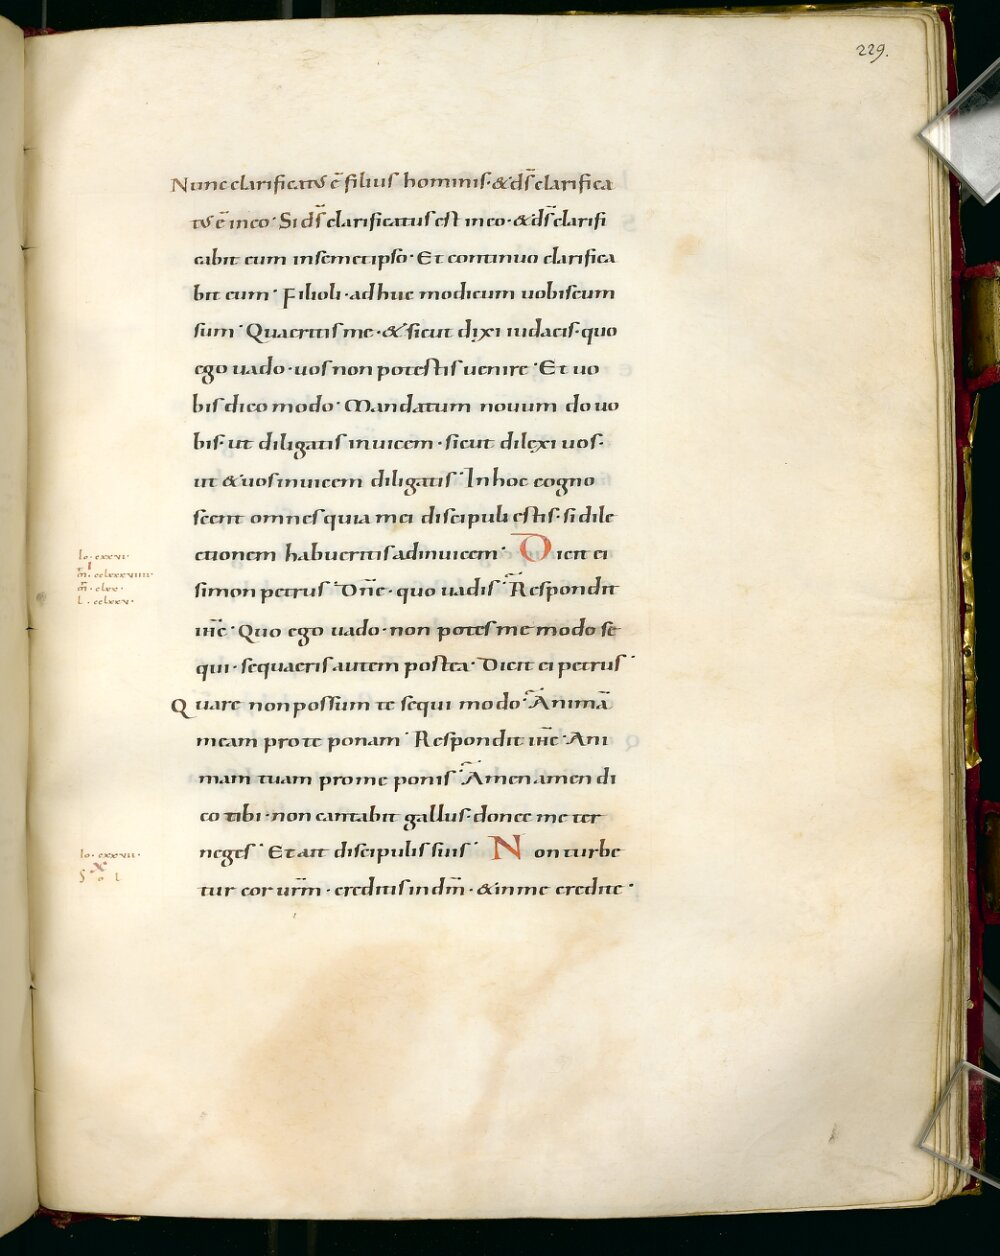 229.
Nunc clarificatus ē filius hominis· & d̄s clarifica
tus ē in eo· Si d̄s clarificatus est in eo· & d̄s clarifi
cabit eum in semetipso· Et continuo clarifica
bit eum· Filioli· adhuc modicum uobiscum
sum· Quaeritis me· & sicut dixi iudaeis· quo
ego uado· uos non potestis uenire· Et uo
bis dico modo· Mandatum nouum do uo
bis· ut diligatis inuicem· sicut dilexi uos·
ut & uos inuicem diligatis· In hoc cogno
scent omnes quia mei discipuli estis· si dile
ctionem habueritis adinuicem· Dicit ei
Io· cxxvi·
m̄· cclxxxviiii·
m̄· clxx·
L· cclxxv·
simon petrus· Dn̄e· quo uadis· Respondit
ih̄c· Quo ego uado· non potes me modo se
qui· sequaeris autem postea· Dicit ei petrus·
Quare non possum te sequi modo· Animā
meam pro te ponam· Respondit ih̄c· Ani
mam tuam pro me ponis· Amen amen di
co tibi· non cantabit gallus· donec me ter
neges· Et ait discipulis suis· Non turbe
Io· cxxvii·
x
S o l
tur cor ur̄m· creditis in dm̄· & in me credite·